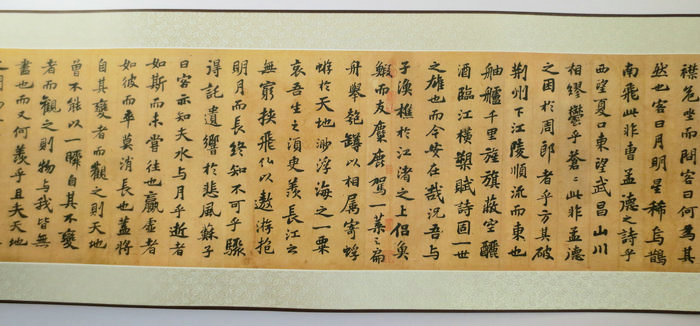 襟危坐而問客曰何為其
然也客曰月明星稀烏鵲
南飛此非曹孟德之詩乎
西望夏口東望武昌山川
相繆鬱乎蒼々此非孟德
之困於周郎者乎方其破
荊州下江陵順流而東也
舳艫千里旌旗蔽空釃
酒臨江橫槊賦詩固一世
之雄也而今安在哉況吾與
子漁樵於江渚之上侶魚
鰕而友麋鹿駕一葉之扁
舟舉匏罇以相屬寄蜉
蝣於天地渺浮海之一粟
哀吾生之須臾羨長江之
無窮挾飛仙以遨游抱
明月而長終知不可乎驟
得託遺響於悲風蘇子
曰客亦知夫水與月乎逝者
如斯而未嘗往也贏虛者
如彼而卒莫消長也蓋將
自其變者而觀之則天地
曾不能以一瞬自其不變
者而觀之則物與我皆無
盡也而又何羨乎且夫天地